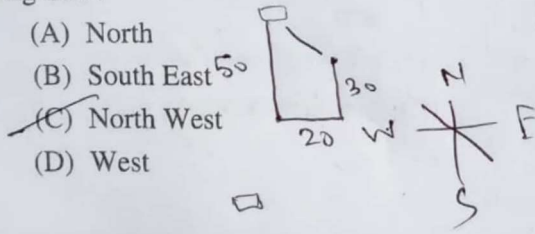 (A) North
(B) South East
(C) North West
(D) West
50
30
20
N
W
E
S